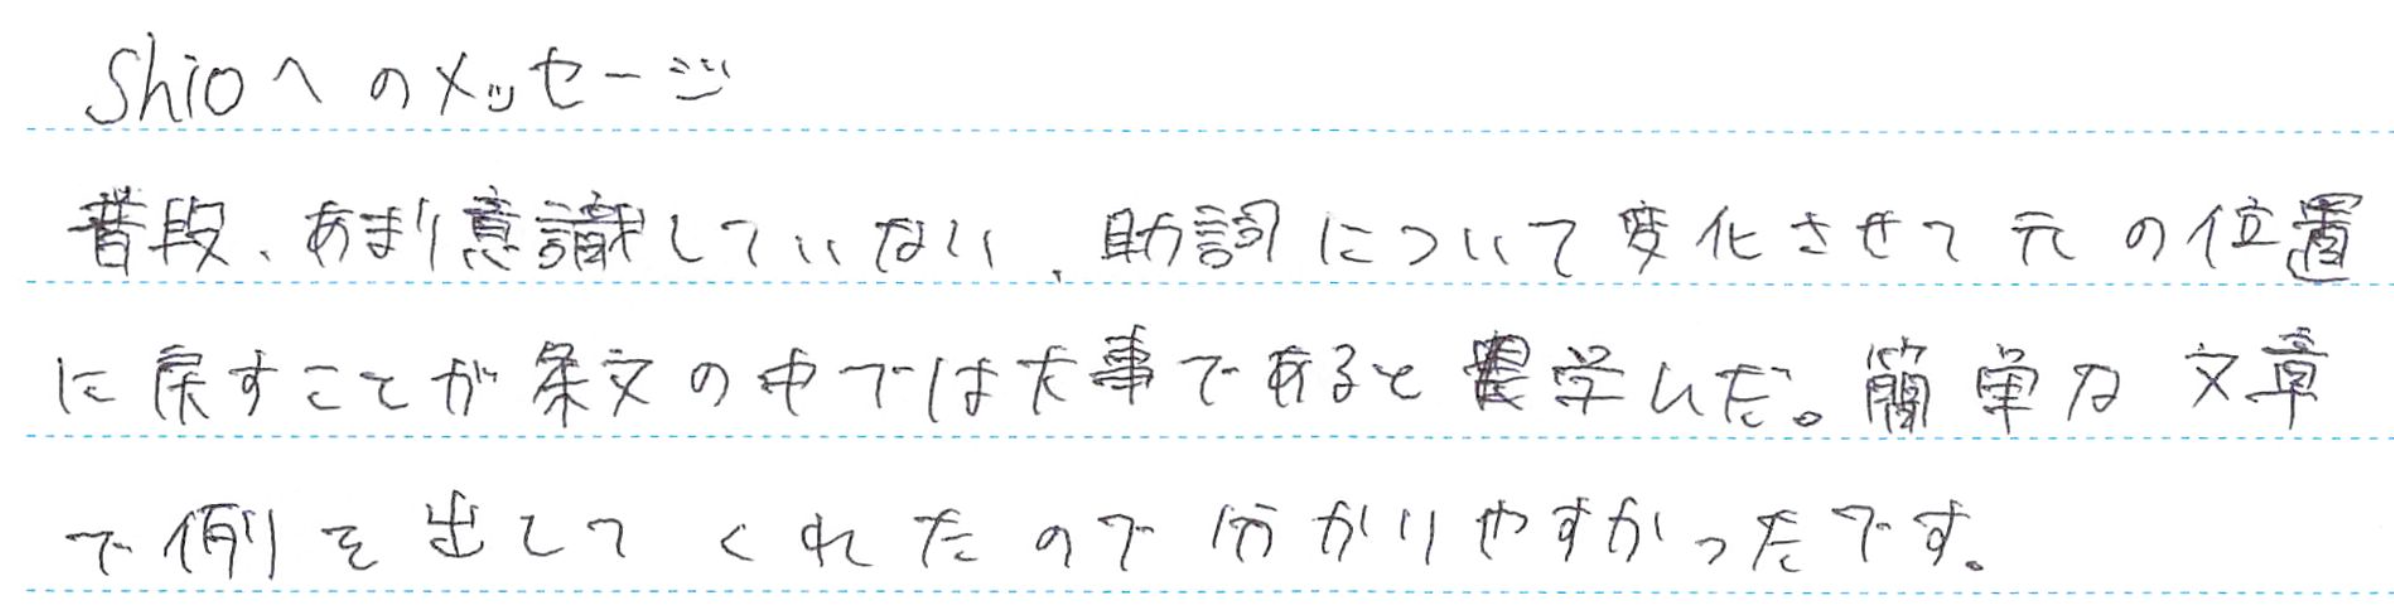 Shioへのメッセージ
普段、あまり意識していない、助詞について変化させて元の位置
に戻すことが条文の中では大事であると学んだ。簡単な文章
で例を出してくれたので分かりやすかったです。